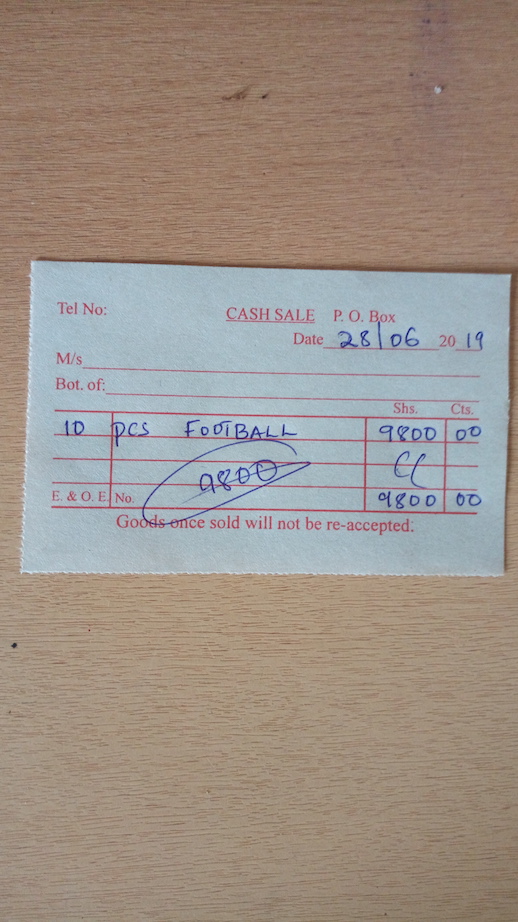 Tel No: CASH SALE P. O. Box
Date 28/06 2019
M/s
Bot. of:
Shs. Cts.
10 pcs FOOTBALL 9800 00
9800
E. & O. E. No. 9800 00
Goods once sold will not be re-accepted.